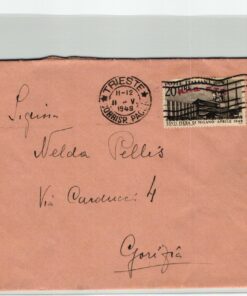 TRIESTE
11-12
11 - V.
1948
20
XXVI FIERA DI MILANO - APRILE 1948
Signora
Nelda Pellis
Via Carducci 4
Gorizia